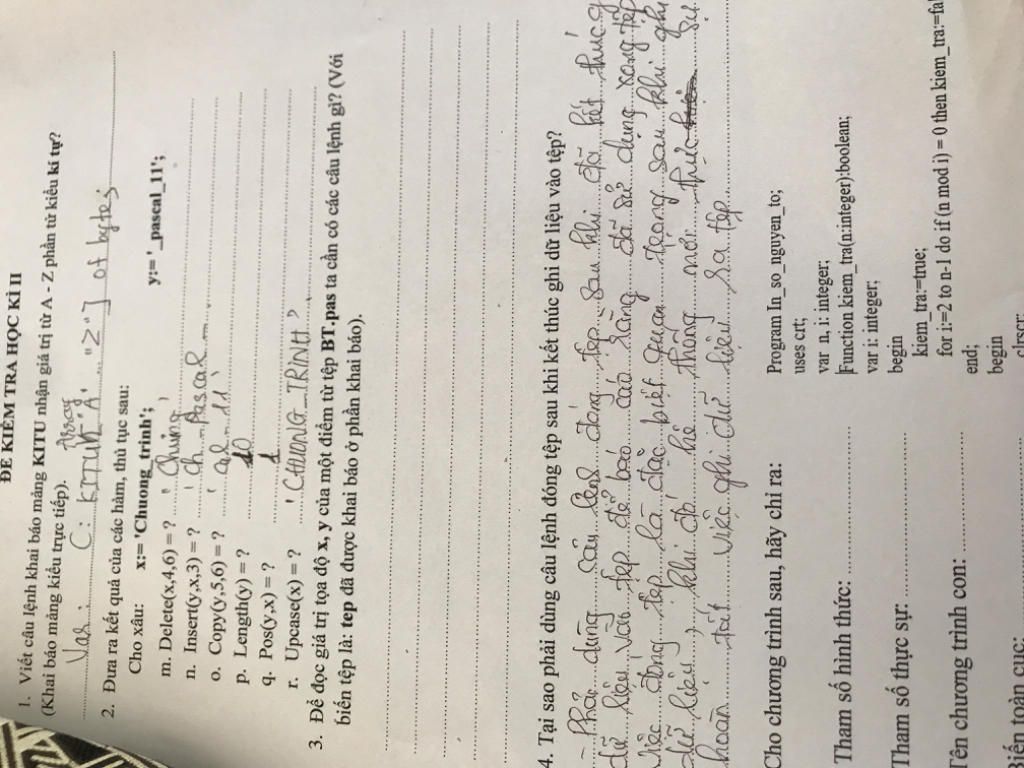 ĐỀ KIỂM TRA HỌC KÌ II
1. Viết câu lệnh khai báo mảng KITU nhận giá trị từ A - Z phần tử kiểu kí tự?
(Khai báo mảng kiểu trực tiếp).
Var: C: KITU Array 'A' .. "Z"] of byte;
2. Đưa ra kết quả của các hàm, thủ tục sau:
Cho xâu: x:= 'Chuong_trinh'; y:= '_pascal_11';
m. Delete(x,4,6) = ?
n. Insert(y,x,3) = ? ' ch_pascal
o. Copy(y,5,6) = ? ' cal_11'
p. Length(y) = ? 10
q. Pos(y,x) = ? 1
r. Upcase(x) = ? 'CHUONG_TRINH'
3. Để đọc giá trị tọa độ x, y của một điểm từ tệp BT.pas ta cần có các câu lệnh gì? (Với
biến tệp là: tep đã được khai báo ở phần khai báo).
4. Tại sao phải dùng câu lệnh đóng tệp sau khi kết thúc ghi dữ liệu vào tệp?
- Phải dùng câu lệnh đóng tệp sau khi đã kết thúc
dữ liệu vào tệp để báo cáo rằng đã sử dụng xong tệp
việc đóng tệp là đặc biệt quan trọng sau khi ghi
dữ liệu, khi đó hệ thống mới thực sự
hoàn tất việc ghi dữ liệu ra tệp
Cho chương trình sau, hãy chỉ ra:
Tham số hình thức:
Tham số thực sự:
Tên chương trình con:
Biến toàn cục:
Program In_so_nguyen_to;
uses crt;
var n, i: integer;
Function kiem_tra(n:integer):boolean;
var i: integer;
begin
kiem_tra:=true;
for i:=2 to n-1 do if (n mod i) = 0 then kiem_tra:=fa
end;
begin
clrscr;